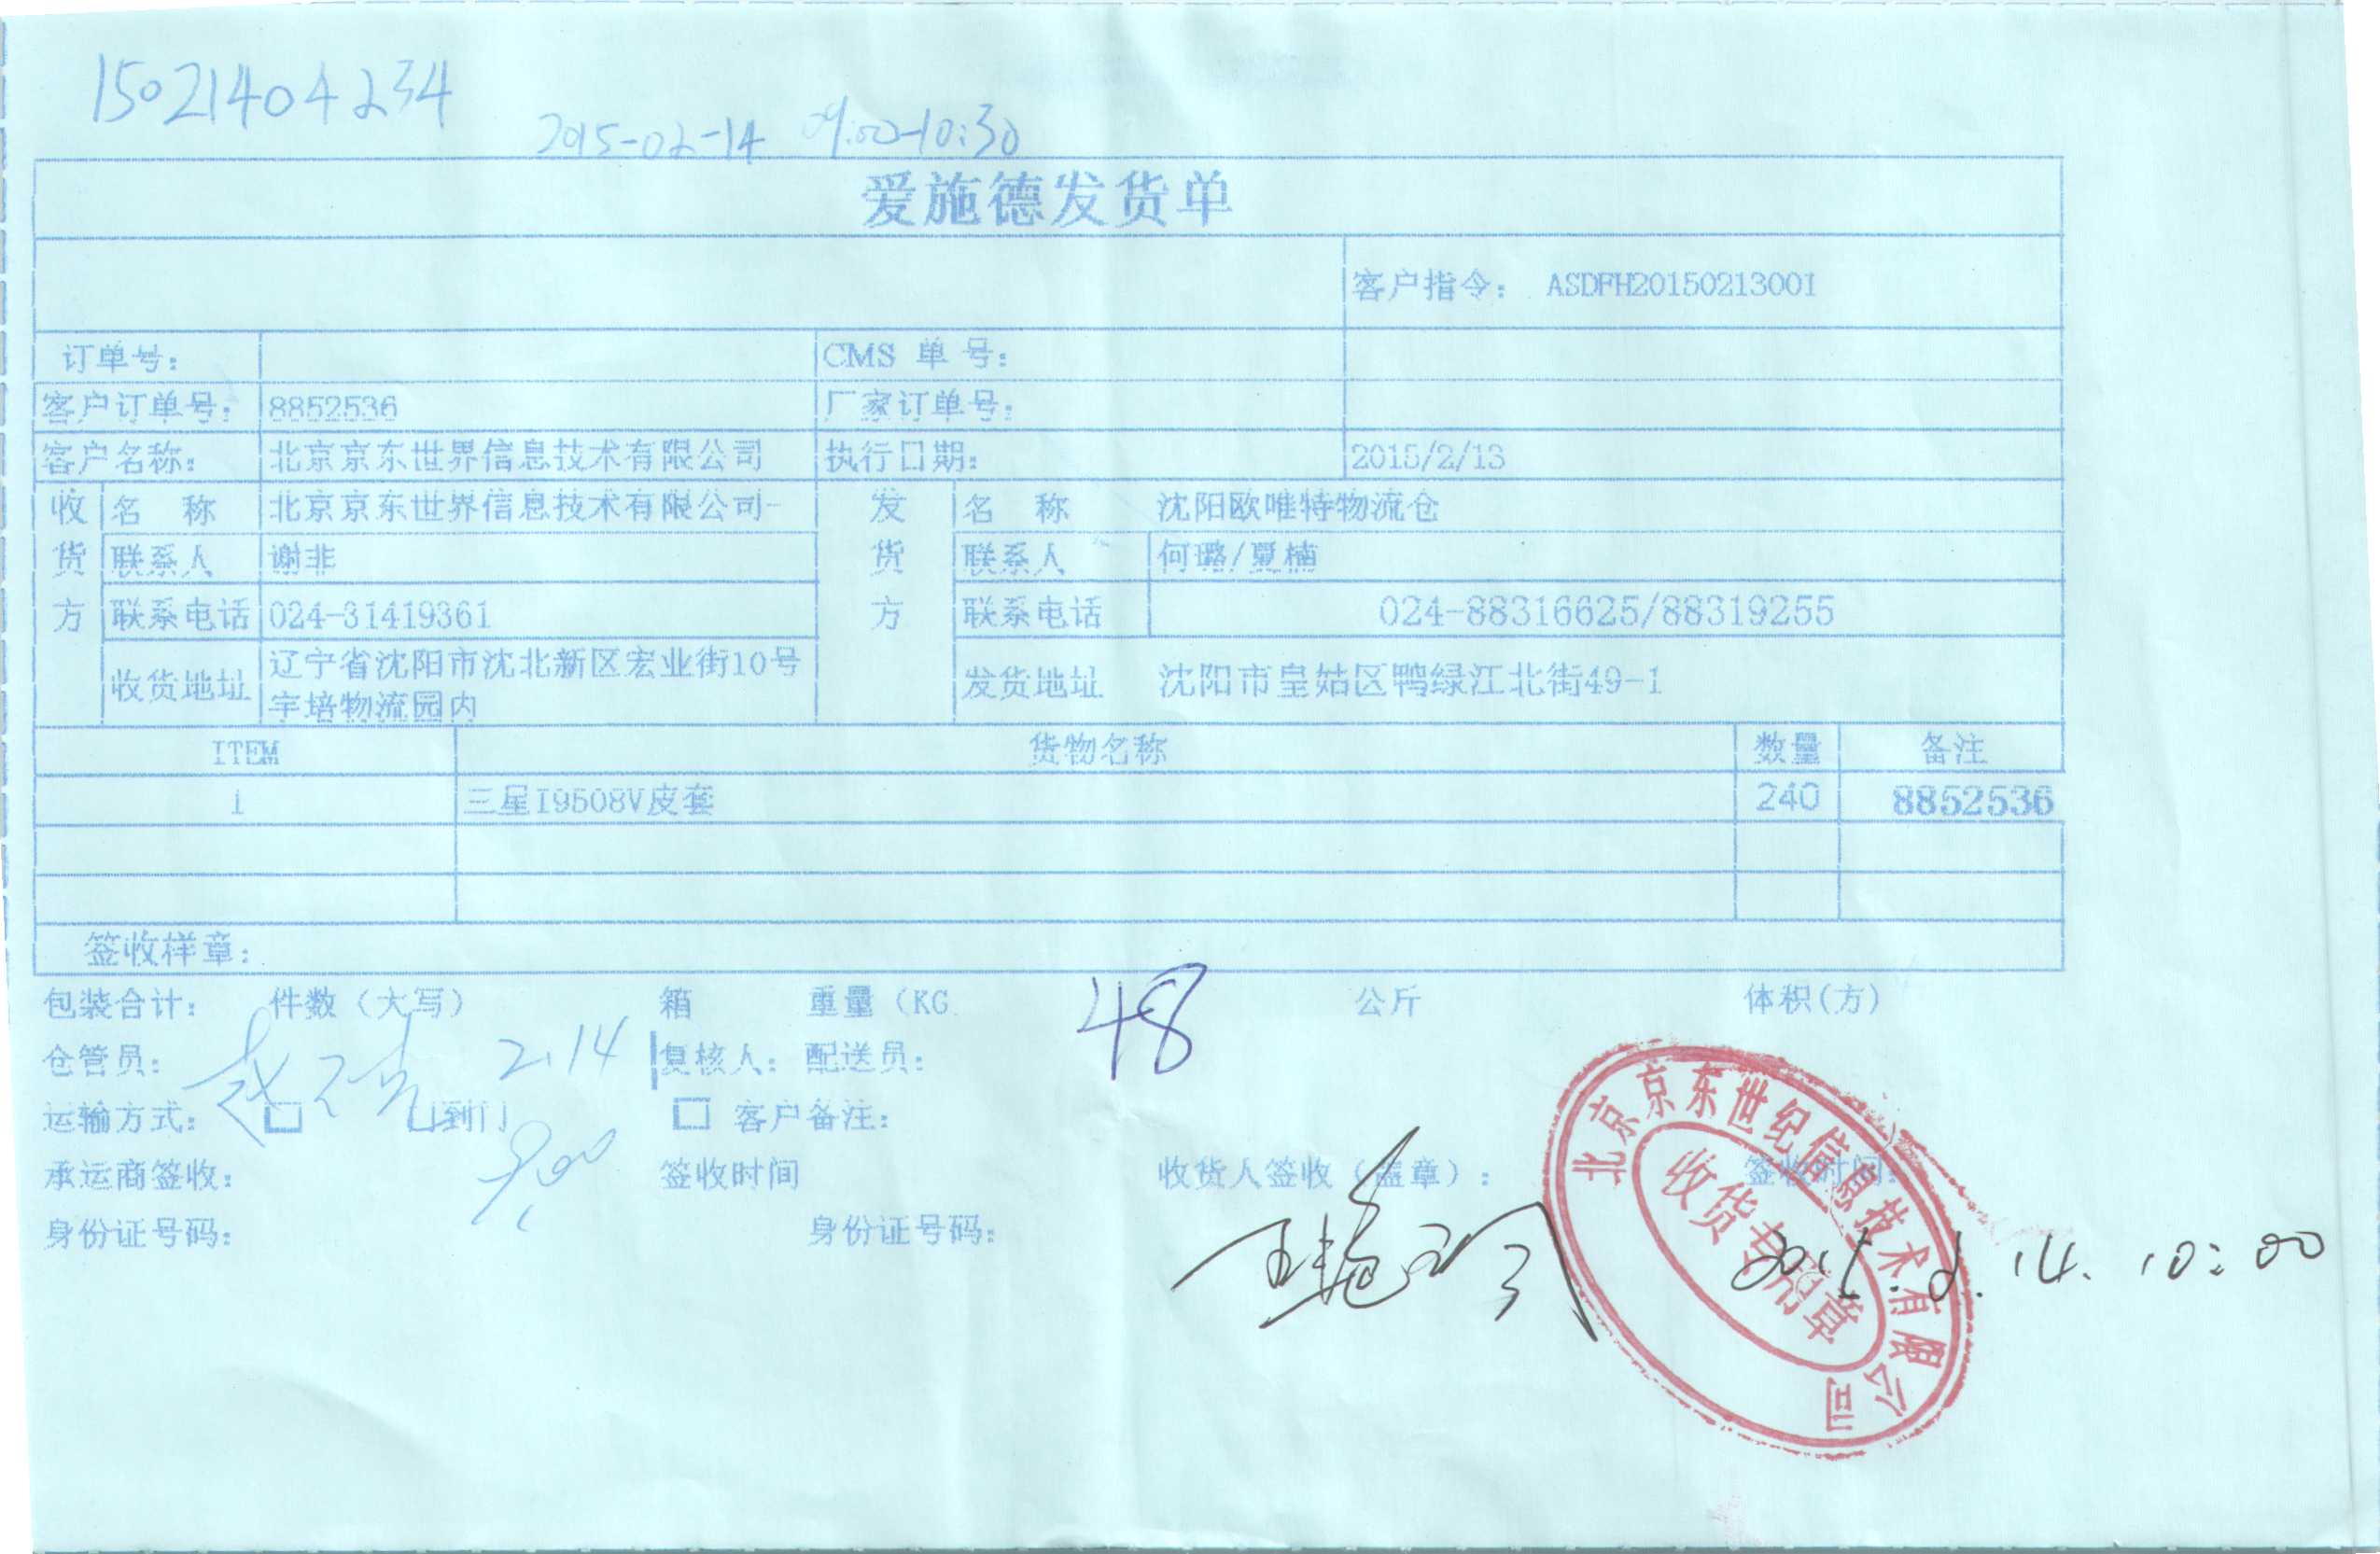 15021404234
2015-02-14 09:00-10:30
爱施德发货单
客户指令： ASDFH20150213001
订单号： CMS 单 号：
客户订单号： 8852536 厂家订单号：
客户名称： 北京京东世界信息技术有限公司 执行日期： 2015/2/13
收货方 名 称 北京京东世界信息技术有限公司- 发货方 名 称 沈阳欧唯特物流仓
联系人 谢非 联系人 何璐/夏楠
联系电话 024-31419361 联系电话 024-88316625/88319255
收货地址 辽宁省沈阳市沈北新区宏业街10号 发货地址 沈阳市皇姑区鸭绿江北街49-1
宇培物流园内
ITEM 货物名称 数量 备注
1 三星I9508V皮套 240 8852536
签收样章：
包装合计： 件数（大写） 箱 重量（KG 48 公斤 体积(方)
仓管员： 2.14 复核人： 配送员：
运输方式： □ □到门 □ 客户备注：
承运商签收： 签收时间 收货人签收（盖章）： 签收时间：
身份证号码： 身份证号码： 2015.2.14. 10:00
北京京东世纪信息技术有限公司
收货专用章